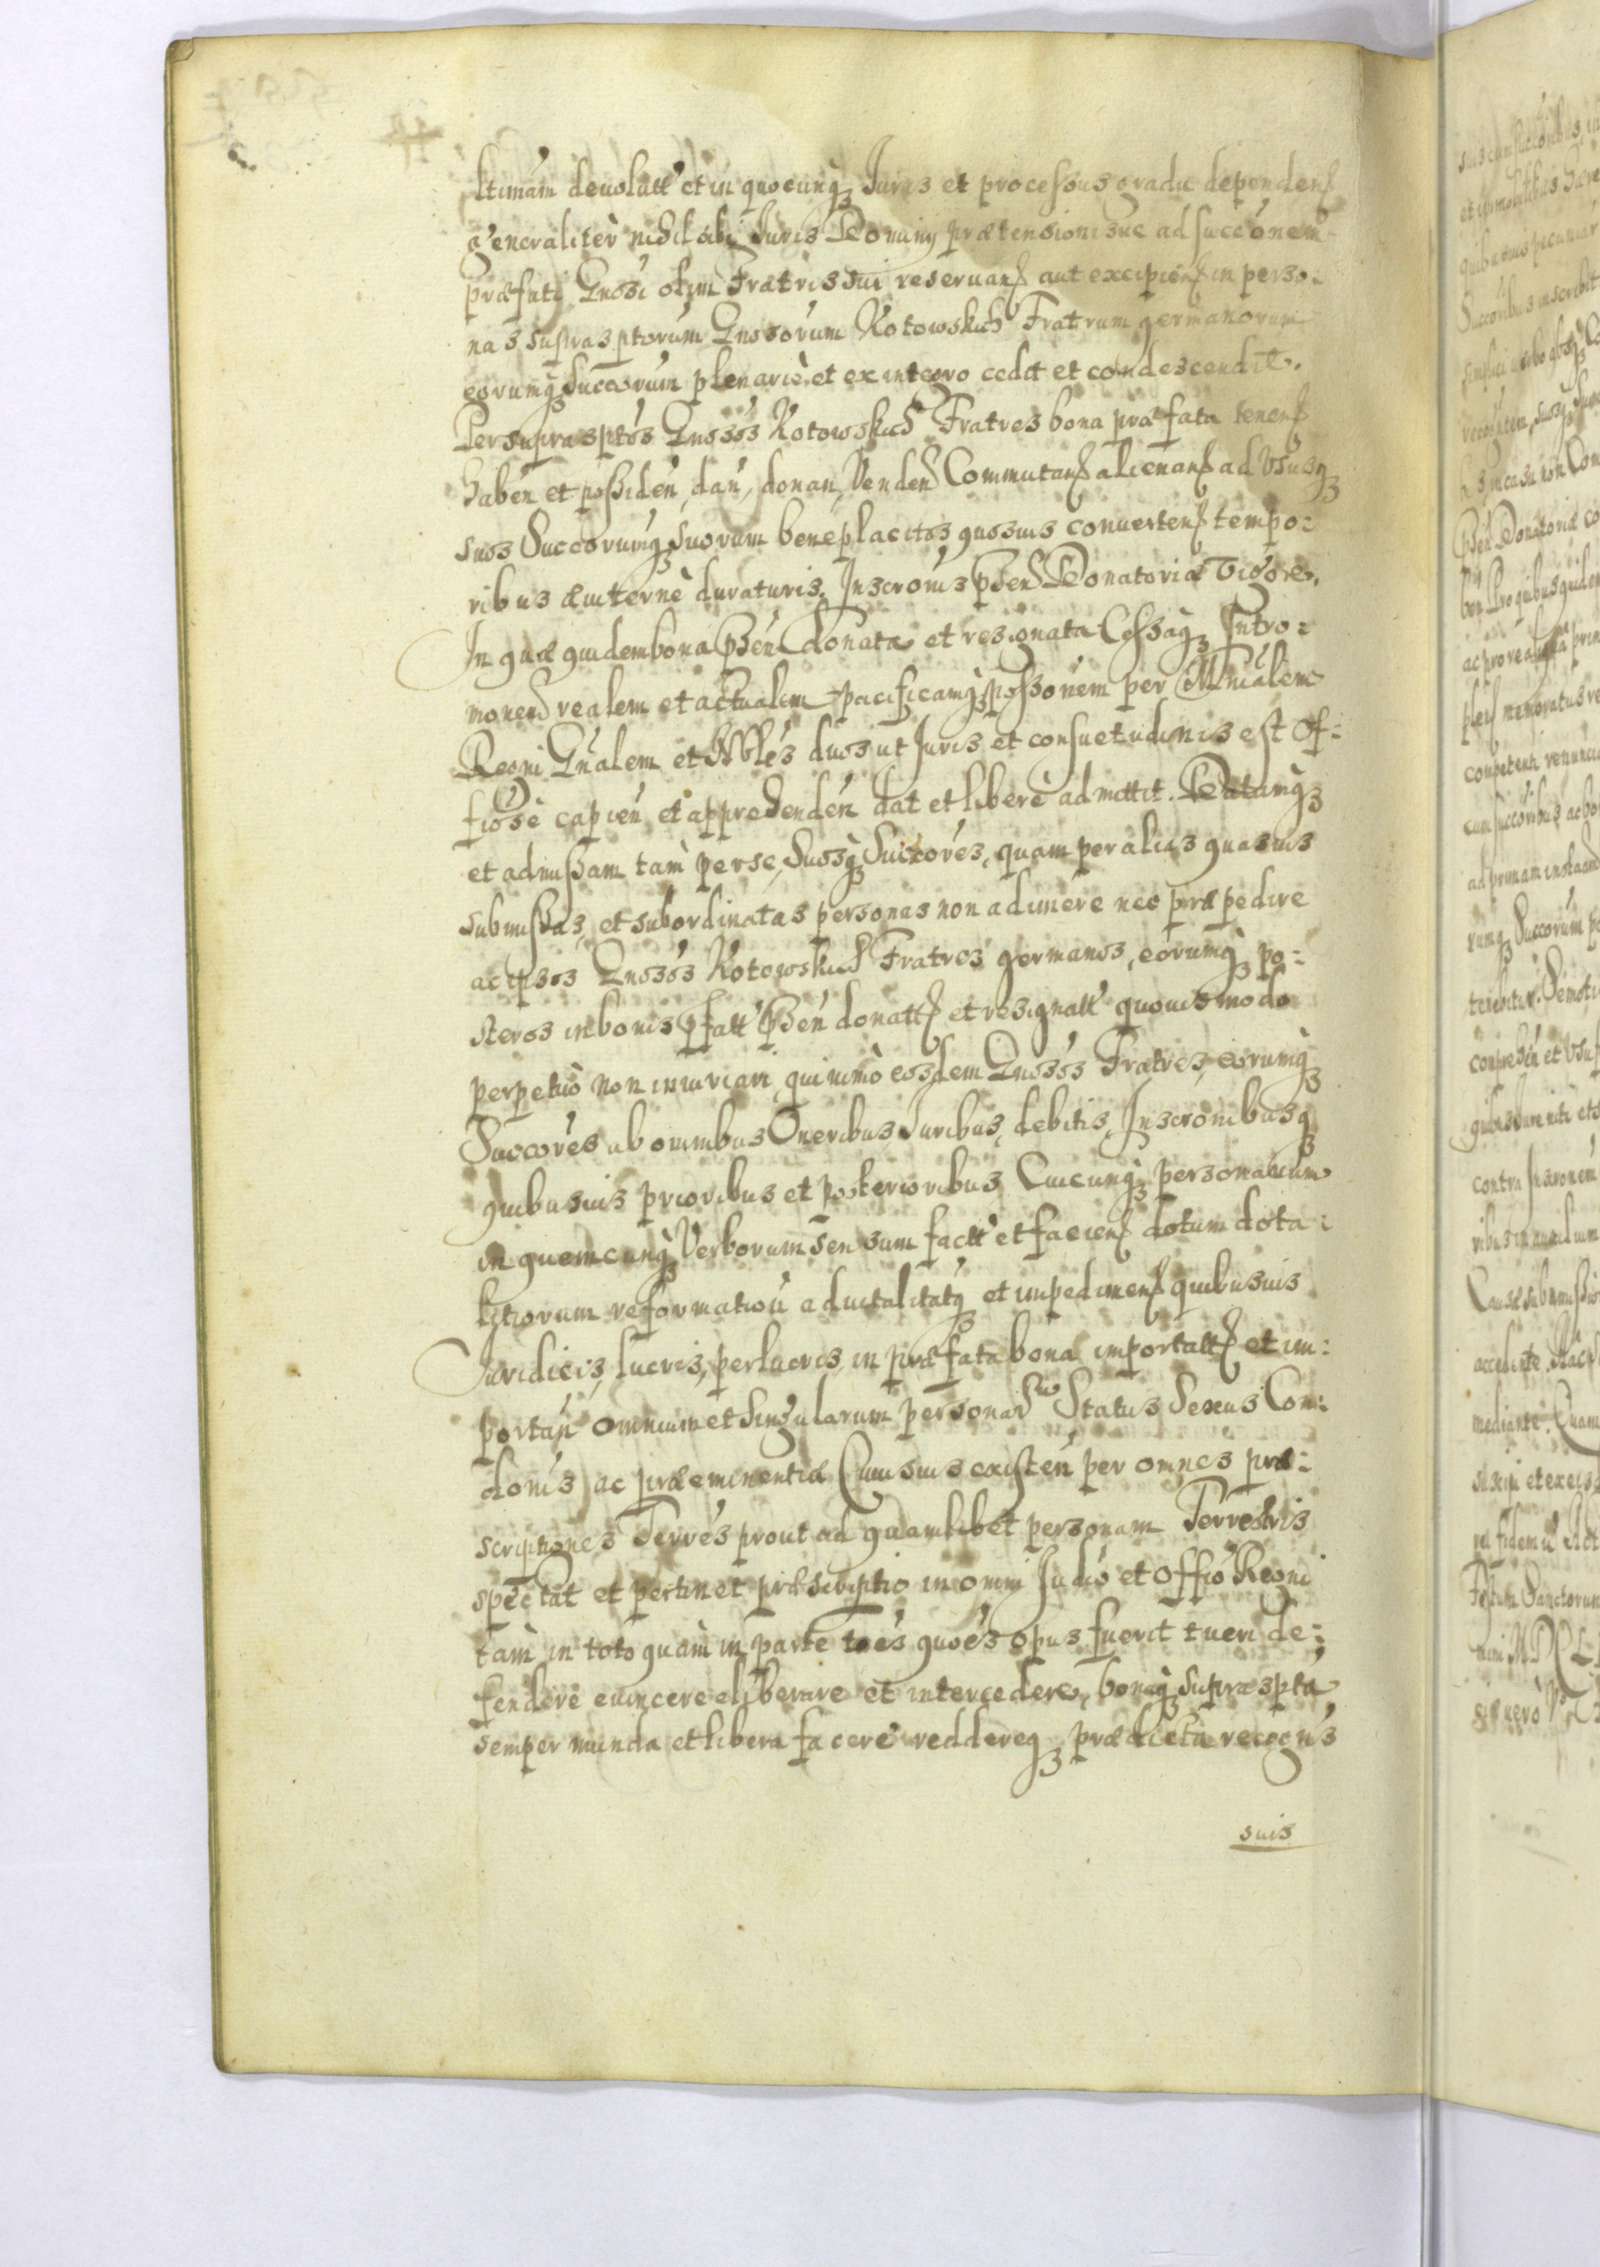 ltimam deuolutt et in quocunq Iuris et processus gradu dependen
generaliter nihil sibi Iuris Dominij prætensionisue ad succonem
præfati Gnosi olim Fratris sui reseruan aut excipien in perso:
nas suprasptorum Gnosorum Kotowskich Fratrum germanorum
eorumq Succorum plenarie et ex integro cedit et condescendit.
Per suprasptos Gnosos Kotowskich Fratres bona præfata tenen
haben et possiden, dan, donan, Venden Commutan alienan ad Vsusq
suos Succorumq suorum beneplacitos quosuis conuerten tempo:
ribus æuiterne duraturis. Inscronis pñen Donatoriæ Vigore.
In quæ quidem bona pñen donata et resignata Cessaq Intro:
monem realem et actualem pacificamq possonem per Mnialem
Regni Gnalem et Nobles duos ut Iuris et consuetudinis est Of:
fiose capien et apprehenden dat et libere admittit. Datamq
et admissam tam per se, Suosq Succores, quam per alias quasuis
submissas, et subordinatas personas non adimere nec præpedire
ac ipsos Gnosos Kotowskich Fratres germanos, eorumq po:
steros in bonis pfatt pñen donatt et resignatt quouismodo
perpetuo non iniuriari, quinimo eosdem Gnosos Fratres, eorumq
Succores ab omnibus Oneribus Iuribus, debitis, Inscronibusq
quibusuis prioribus et posterioribus Cuicunq personarum
in quemcunq Verborum sensum factt et facien dotum dota:
litiorum reformation aduitalitatq et impedimen quibusuis
Iuridicis, lucris, perlucris, in præfata bona importatt et im:
portan omnium et singularum personar Status Sexus Con:
donis ac præeminentiæ Cuiusuis existen per omnes præ:
scriptiones Terres prout ad quamlibet personam Terrestris
spectat et pertinet præscriptio in omni Iudio et Offio Regni
tam in toto quam in parte toes quoes opus fuerit tueri de:
fendere euincere eliberare et intercedere, bonaq supraspta
semper munda et libera facere reddereq prædicta recogns
suis